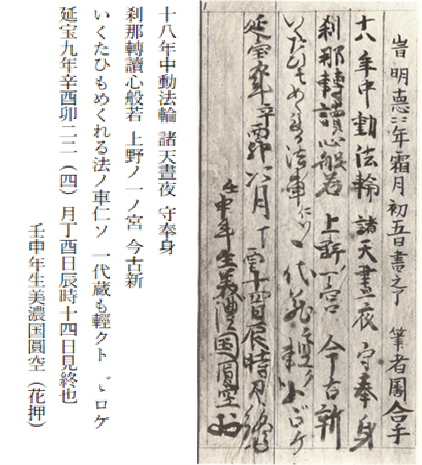 旹明徳二年霜月初五日書之了 筆者周合手
十八年中動法輪 諸天晝夜 守奉身
刹那轉讀心般若 上野ノ一ノ宮 今古新
いくたひもめくれる法ノ車仁ソ 一代蔵も輕クトゞロケ
延宝九年辛酉卯二二月丁酉十四日辰時見終也
壬申年生美濃国圓空
十八年中動法輪 諸天晝夜 守奉身
刹那轉讀心般若 上野ノ一ノ宮 今古新
いくたひもめくれる法ノ車仁ソ 一代蔵も輕クト゛ヽロケ
延宝九年辛酉卯二二(四)月丁酉日辰時十四日見終也
壬申年生美濃国圓空(花押)